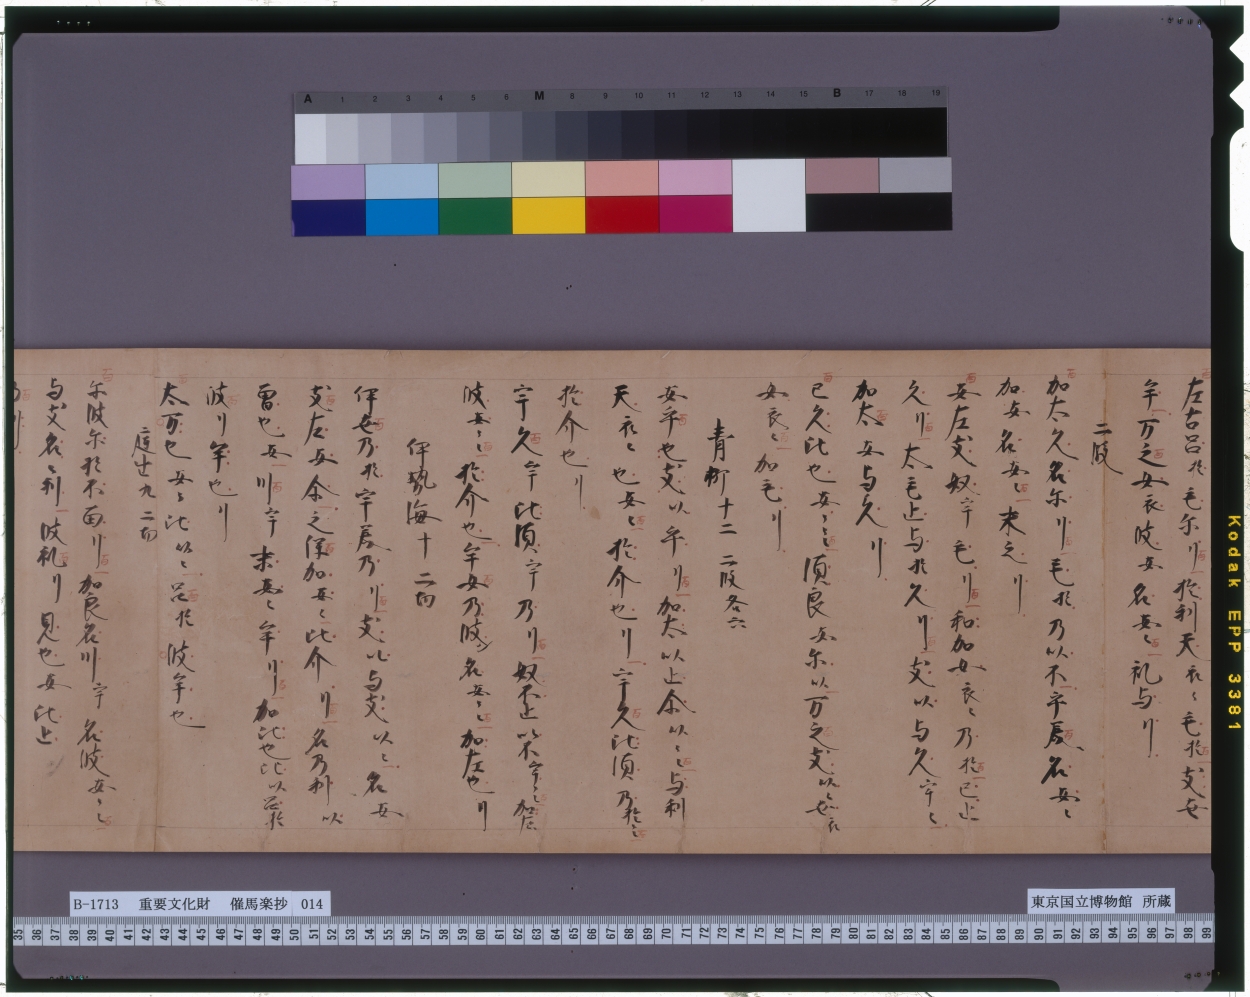 A 1 2 3 4 5 6 M 8 9 10 11 12 13 14 15 B 17 18 19
左古呂於毛尓川於利天衣々毛於支世
牟万之安衣波安名安々礼与川
二段
加太久名尓川毛於乃以不宇良名安々
加安名安々末之川
安左支奴宇毛川和加女衣々乃於已止
久川太毛止与於久川支以与久宇々
加太安与久川
已久比也安々々須良安尓以万之支以々女衣
女衣々加毛川
青柳十二 二段各六
安乎也支以乎川加太以止余以々与利
天衣々也安々於介也川宇久比須乃於々
於介也川
宇久宇比須宇乃川奴不止以不宇々加左
波安々於介也牟女乃波名安々加左也川
伊勢海十 二拍
伊世乃於宇良乃川支以与支以々名安
支左安余之保加安々比介川名乃利以
曽也安川宇末安々牟川加比也比以呂於
波川牟也川
太万也安々比以々呂於波牟也
庭生九 二拍
尓波尓於不面川加良名川宇名波安々
与支名々利波礼川見也安比止
B-1713 重要文化財 催馬楽抄 014
東京国立博物館 所蔵
35 36 37 38 39 40 41 42 43 44 45 46 47 48 49 50 51 52 53 54 55 56 57 58 59 60 61 62 63 64 65 66 67 68 69 70 71 72 73 74 75 76 77 78 79 80 81 82 83 84 85 86 87 88 89 90 91 92 93 94 95 96 97 98 99
Kodak EPP 3381